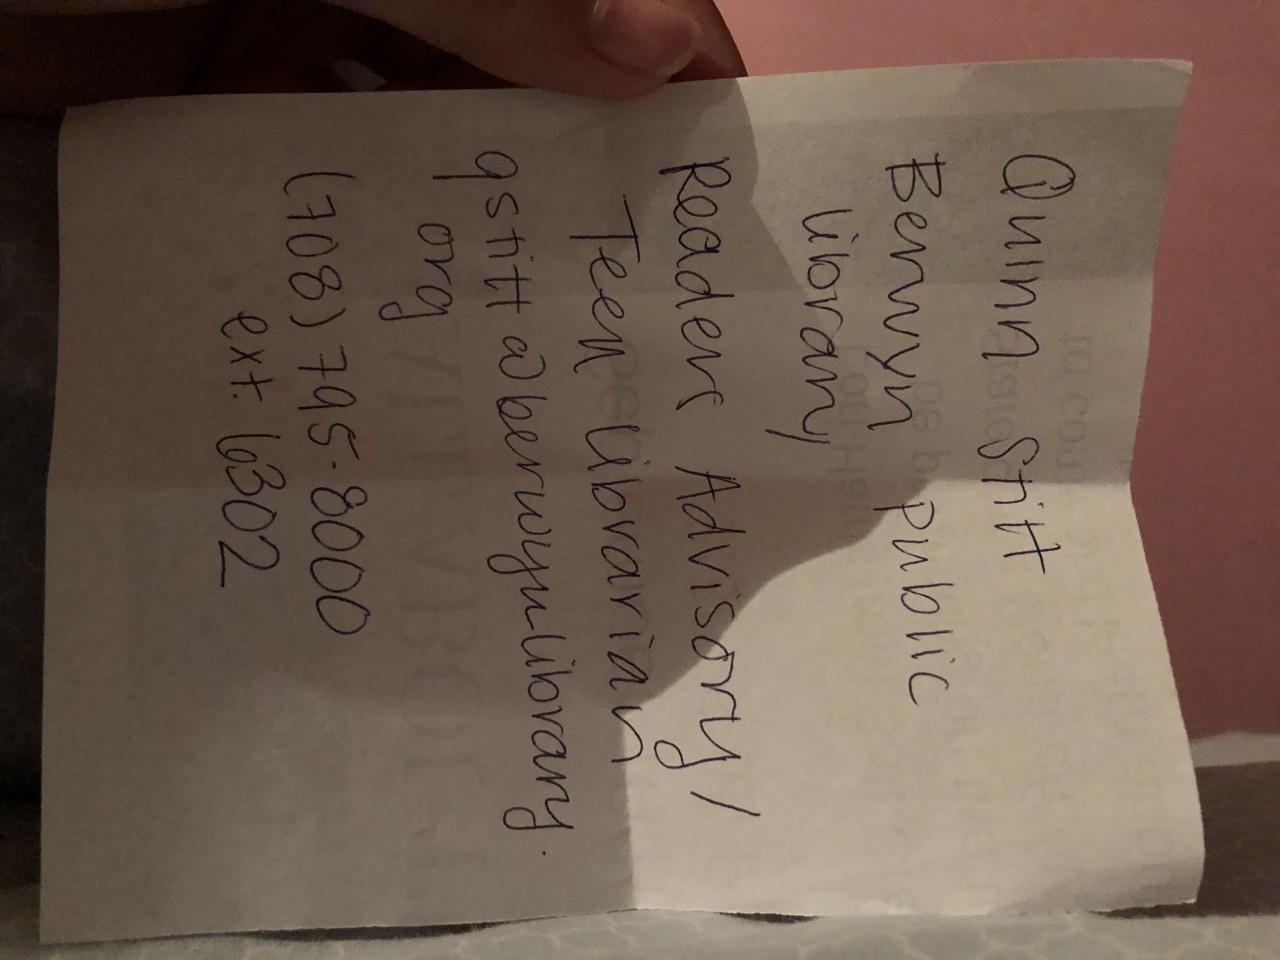 Quinn Stitt
Berwyn Public
Library
Readers Advisory/
Teen Librarian
qstitt@berwynlibrary.
org
(708) 795-8000
ext. 6302